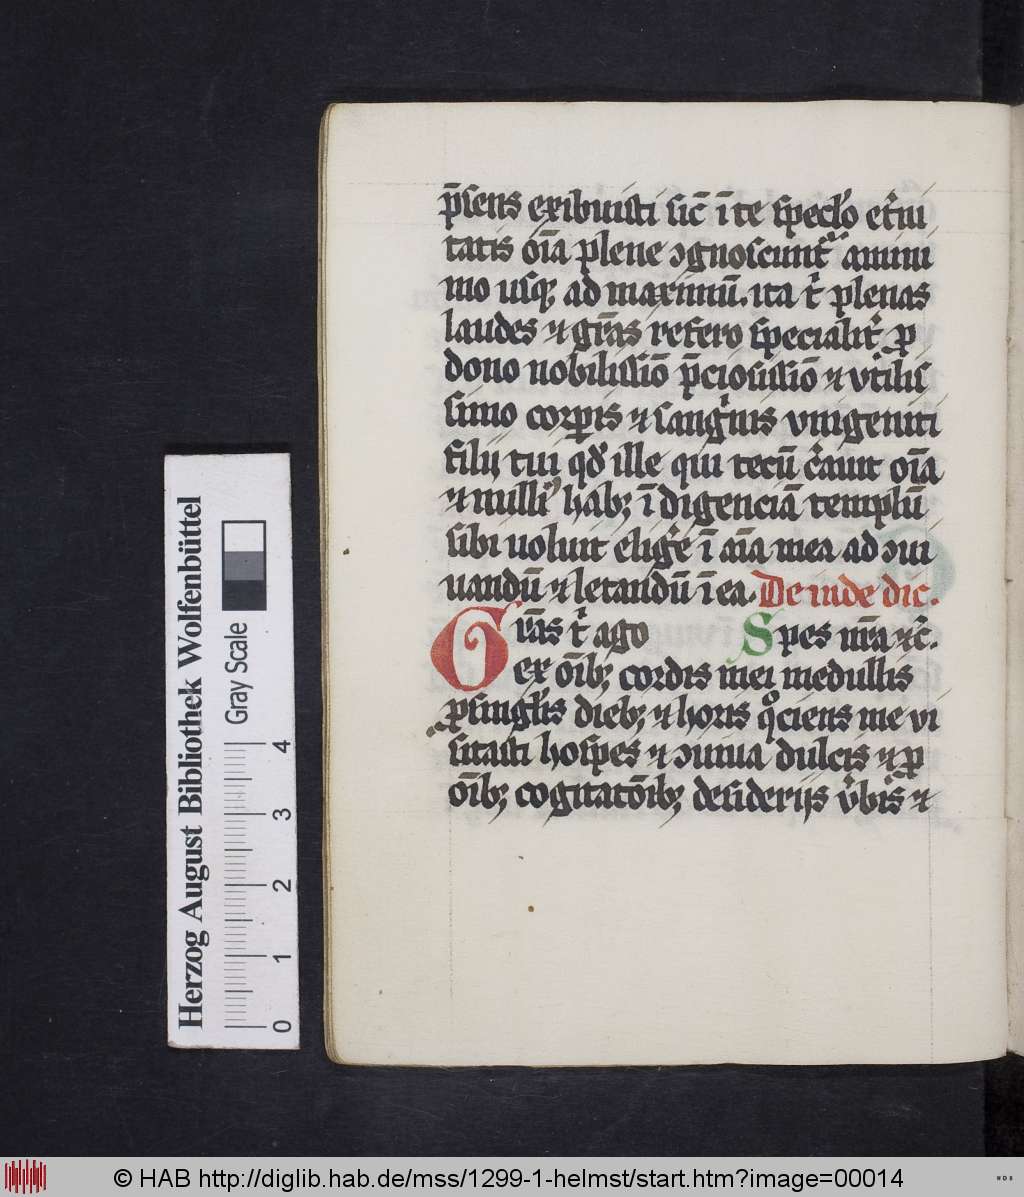 p̄sens exibuisti sic̄ ī te spec̄lo et̾ni
tatis oīa plene ꝯgnoscunt̾ a mini
mo usqꝫ ad maximū. ita t̾ plenas
laudes ⁊ gr̄as refero specialit̾ ꝓ
dono nobilissīo p̄ciosissīo ⁊ vtilis
simo corꝑis ⁊ sang̾nis vnigeniti
filij tui qd̾ ille qui tecū c̾auit oīa
⁊ nulli9 habꝫ īdigenciā templū
sibi uoluit elig̾e ī aīa mea ad ꝯui
uandū ⁊ letandū ī ea. De inde dic.
Gr̄as t̾ ago Spes nr̄a ⁊c̄.
ex oībꝫ cordis mei medullis
ꝓ singl̾is diebꝫ ⁊ horis qociens me vi
sitasti hospes ⁊ ꝯuiua dulcis ⁊ ꝓ
oībꝫ cogitacōībꝫ desiderijs v̾bis ⁊
Herzog August Bibliothek Wolfenbüttel
Gray Scale
0 1 2 3 4
© HAB http://diglib.hab.de/mss/1299-1-helmst/start.htm?image=00014